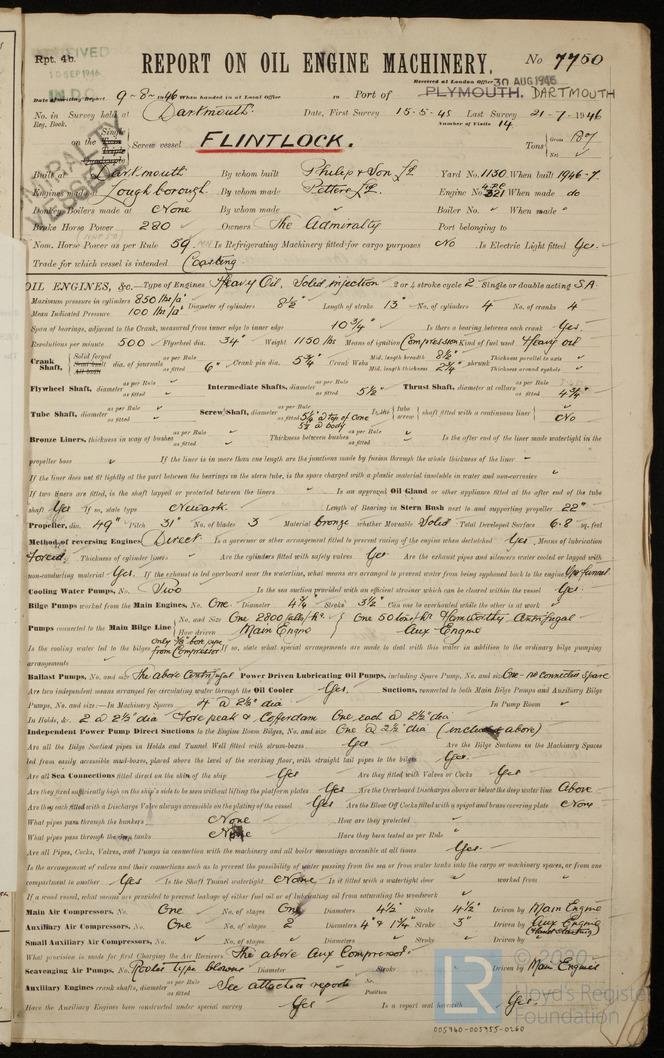 Rpt. 4b.
RECEIVED
10 SEP 1946
IN D.O.
REPORT ON OIL ENGINE MACHINERY.
No 7750
Received at London Office 30 AUG 1946
Date of writing Report 9-8-1946 When handed in at Local Office 19 Port of PLYMOUTH. DARTMOUTH
No. in Survey held at Dartmouth. Date, First Survey 15-5-45 Last Survey 21-7-1946
Reg. Book. Number of Visits 14
ADMIRALTY VESSEL
on the Single Triple Quadruple Screw vessel FLINTLOCK. Tons Gross Net
Built at Dartmouth By whom built Philip & Son Ld. Yard No. 1130 When built 1946-7
Engines made at Loughborough. By whom made Petters Ld. Engine No. When made do
Donkey Boilers made at None By whom made Boiler No. When made
Brake Horse Power 280 Owners The Admiralty Port belonging to
Nom. Horse Power as per Rule 59 Is Refrigerating Machinery fitted for cargo purposes No. Is Electric Light fitted Yes.
Trade for which vessel is intended Coasting
OIL ENGINES, &c.—Type of Engines Heavy Oil, Solid injection 2 or 4 stroke cycle 2 Single or double acting S.A.
Maximum pressure in cylinders 850 lbs/□" Diameter of cylinders 8½" Length of stroke 13" No. of cylinders 4 No. of cranks 4
Mean Indicated Pressure 100 lbs/□"
Span of bearings, adjacent to the Crank, measured from inner edge to inner edge 10¾" Is there a bearing between each crank Yes.
Revolutions per minute 500 Flywheel dia. 34" Weight 1150 lbs Means of ignition Compression Kind of fuel used Heavy oil
Crank Shaft, Solid forged Semi built All built dia. of journals as per Rule as fitted 6" Crank pin dia. 5¾" Crank Webs Mid. length breadth 8½" Mid. length thickness 2¾" shrunk Thickness parallel to axis Thickness around eyehole
Flywheel Shaft, diameter as per Rule as fitted Intermediate Shafts, diameter as per Rule as fitted 5½" Thrust Shaft, diameter at collars as per Rule as fitted 4¾"
Tube Shaft, diameter as per Rule as fitted Screw Shaft, diameter as per Rule as fitted 5¼ @ top of cone 5⅜ @ body Is the tube screw shaft fitted with a continuous liner No
Bronze Liners, thickness in way of bushes as per Rule as fitted Thickness between bushes as per Rule as fitted Is the after end of the liner made watertight in the
propeller boss If the liner is in more than one length are the junctions made by fusion through the whole thickness of the liner
If the liner does not fit tightly at the part between the bearings in the stern tube, is the space charged with a plastic material insoluble in water and non-corrosive
If two liners are fitted, is the shaft lapped or protected between the liners Is an approved Oil Gland or other appliance fitted at the after end of the tube
shaft Yes If so, state type Newark. Length of Bearing in Stern Bush next to and supporting propeller 22"
Propeller, dia. 49" Pitch 31" No. of blades 3 Material bronze whether Moveable Solid Total Developed Surface 6.8 sq. feet
Method of reversing Engines Direct Is a governor or other arrangement fitted to prevent racing of the engine when declutched Yes. Means of lubrication
Forced Thickness of cylinder liners Are the cylinders fitted with safety valves Yes Are the exhaust pipes and silencers water cooled or lagged with
non-conducting material Yes. If the exhaust is led overboard near the waterline, what means are arranged to prevent water from being syphoned back to the engine Up funnel
Cooling Water Pumps, No. Two Is the sea suction provided with an efficient strainer which can be cleared within the vessel Yes.
Bilge Pumps worked from the Main Engines, No. One Diameter 4¼" Stroke 3½" Can one be overhauled while the other is at work
Pumps connected to the Main Bilge Line No. and Size One 2800 galls/hr. One 50 tons/hr Hamworthy Centrifugal
How driven Main Engine Aux Engine
Is the cooling water led to the bilges only ⅜" bore pipe from Compressor If so, state what special arrangements are made to deal with this water in addition to the ordinary bilge pumping
arrangements
Ballast Pumps, No. and size The above Centrifugal Power Driven Lubricating Oil Pumps, including Spare Pump, No. and size One - no connected spare
Are two independent means arranged for circulating water through the Oil Cooler Yes. Suctions, connected to both Main Bilge Pumps and Auxiliary Bilge
Pumps, No. and size:—In Machinery Spaces 4 @ 2½" dia In Pump Room
In Holds, &c. 2 @ 2½" dia Fore peak & Cofferdam One each @ 2½" dia
Independent Power Pump Direct Suctions to the Engine Room Bilges, No. and size One @ 2½" dia (included above)
Are all the Bilge Suction pipes in Holds and Tunnel Well fitted with strum-boxes Yes Are the Bilge Suctions in the Machinery Spaces
led from easily accessible mud-boxes, placed above the level of the working floor, with straight tail pipes to the bilges Yes.
Are all Sea Connections fitted direct on the skin of the ship Yes Are they fitted with Valves or Cocks Yes
Are they fixed sufficiently high on the ship's side to be seen without lifting the platform plates Yes Are the Overboard Discharges above or below the deep water line Above
Are they each fitted with a Discharge Valve always accessible on the plating of the vessel Yes Are the Blow Off Cocks fitted with a spigot and brass covering plate None
What pipes pass through the bunkers None How are they protected
What pipes pass through the deep tanks None Have they been tested as per Rule
Are all Pipes, Cocks, Valves, and Pumps in connection with the machinery and all boiler mountings accessible at all times Yes.
Is the arrangement of valves and their connections such as to prevent the possibility of water passing from the sea or from water tanks into the cargo or machinery spaces, or from one
compartment to another Yes Is the Shaft Tunnel watertight None Is it fitted with a watertight door worked from
If a wood vessel, what means are provided to prevent leakage of either fuel oil or of lubricating oil from saturating the woodwork
Main Air Compressors, No. One No. of stages One Diameters 4½" Stroke 4½" Driven by Main Engine
Auxiliary Air Compressors, No. One No. of stages 2 Diameters 4" & 1¾" Stroke 3" Driven by Aux Engine
Small Auxiliary Air Compressors, No. No. of stages Diameters Stroke Driven by
What provision is made for first Charging the Air Receivers The above Aux Compressor.
Scavenging Air Pumps, No. Rootes type blower Diameter Stroke Driven by Main Engines
Auxiliary Engines crank shafts, diameter as per Rule as fitted See attached reports No. Position
Have the Auxiliary Engines been constructed under special survey Yes Is a report sent herewith Yes.
LR
© 2020
Lloyd's Register
Foundation
005340-005355-0260